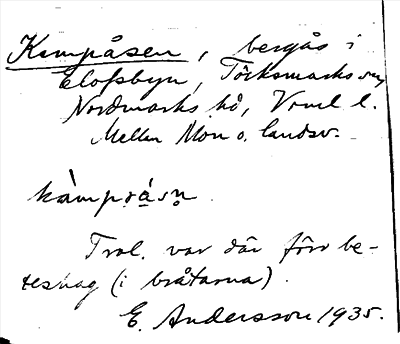 Kampåsen, bergås i
Elofsbyn, Töcksmarks sn,
Nordmarks hd, Vrml l.
Mellan Mon o. landsv.
kàmpɷ̀sn
Trol. var där förr be-
teshag (i bråtarna).
E. Andersson 1935.